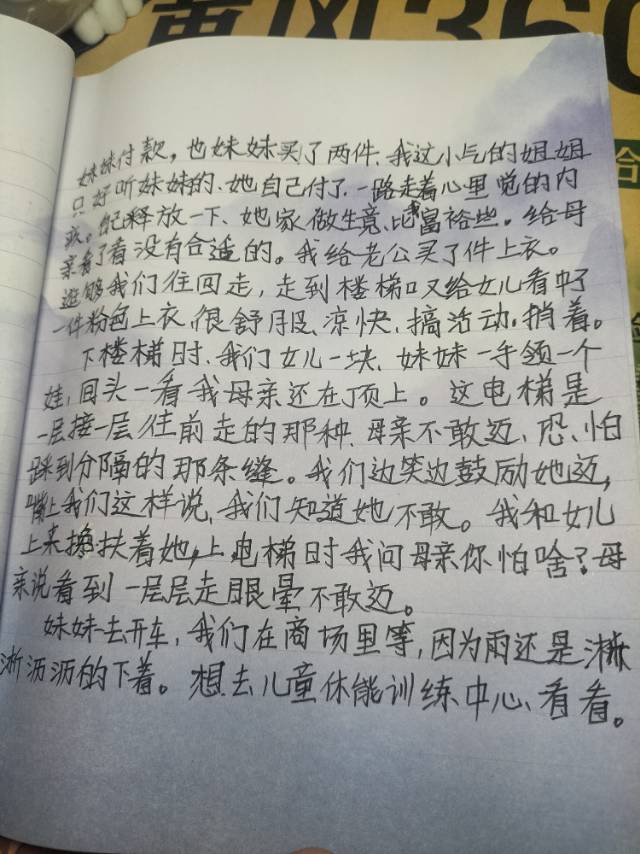 黄风360
妹妹付款，也妹妹买了两件、我这小气的姐姐
只好听妹妹的、她自己付了、一路走着心里觉的内
疚。自己释放一下、她家做生意、比我富裕些。给母
亲看了看没有合适的。我给老公买了件上衣。
逛够我们往回走，走到楼梯口又给女儿看中了
一件粉色上衣、很舒服、凉快、搞活动。捎着。
下楼梯时、我们女儿一块、妹妹一手领一个
娃，回头一看我母亲还在顶上。这电梯是
一层接一层往前走的那种、母亲不敢迈、恐怕
踩到分隔的那条缝。我们边笑边鼓励她迈，
嘴上我们这样说、我们知道她不敢。我和女儿
上来搀扶着她，上电梯时我问母亲你怕啥？母
亲说看到一层层走眼晕不敢迈。
妹妹去开车，我们在商场里等，因为雨还是淅
淅沥沥的下着。想去儿童体能训练中心、看看。